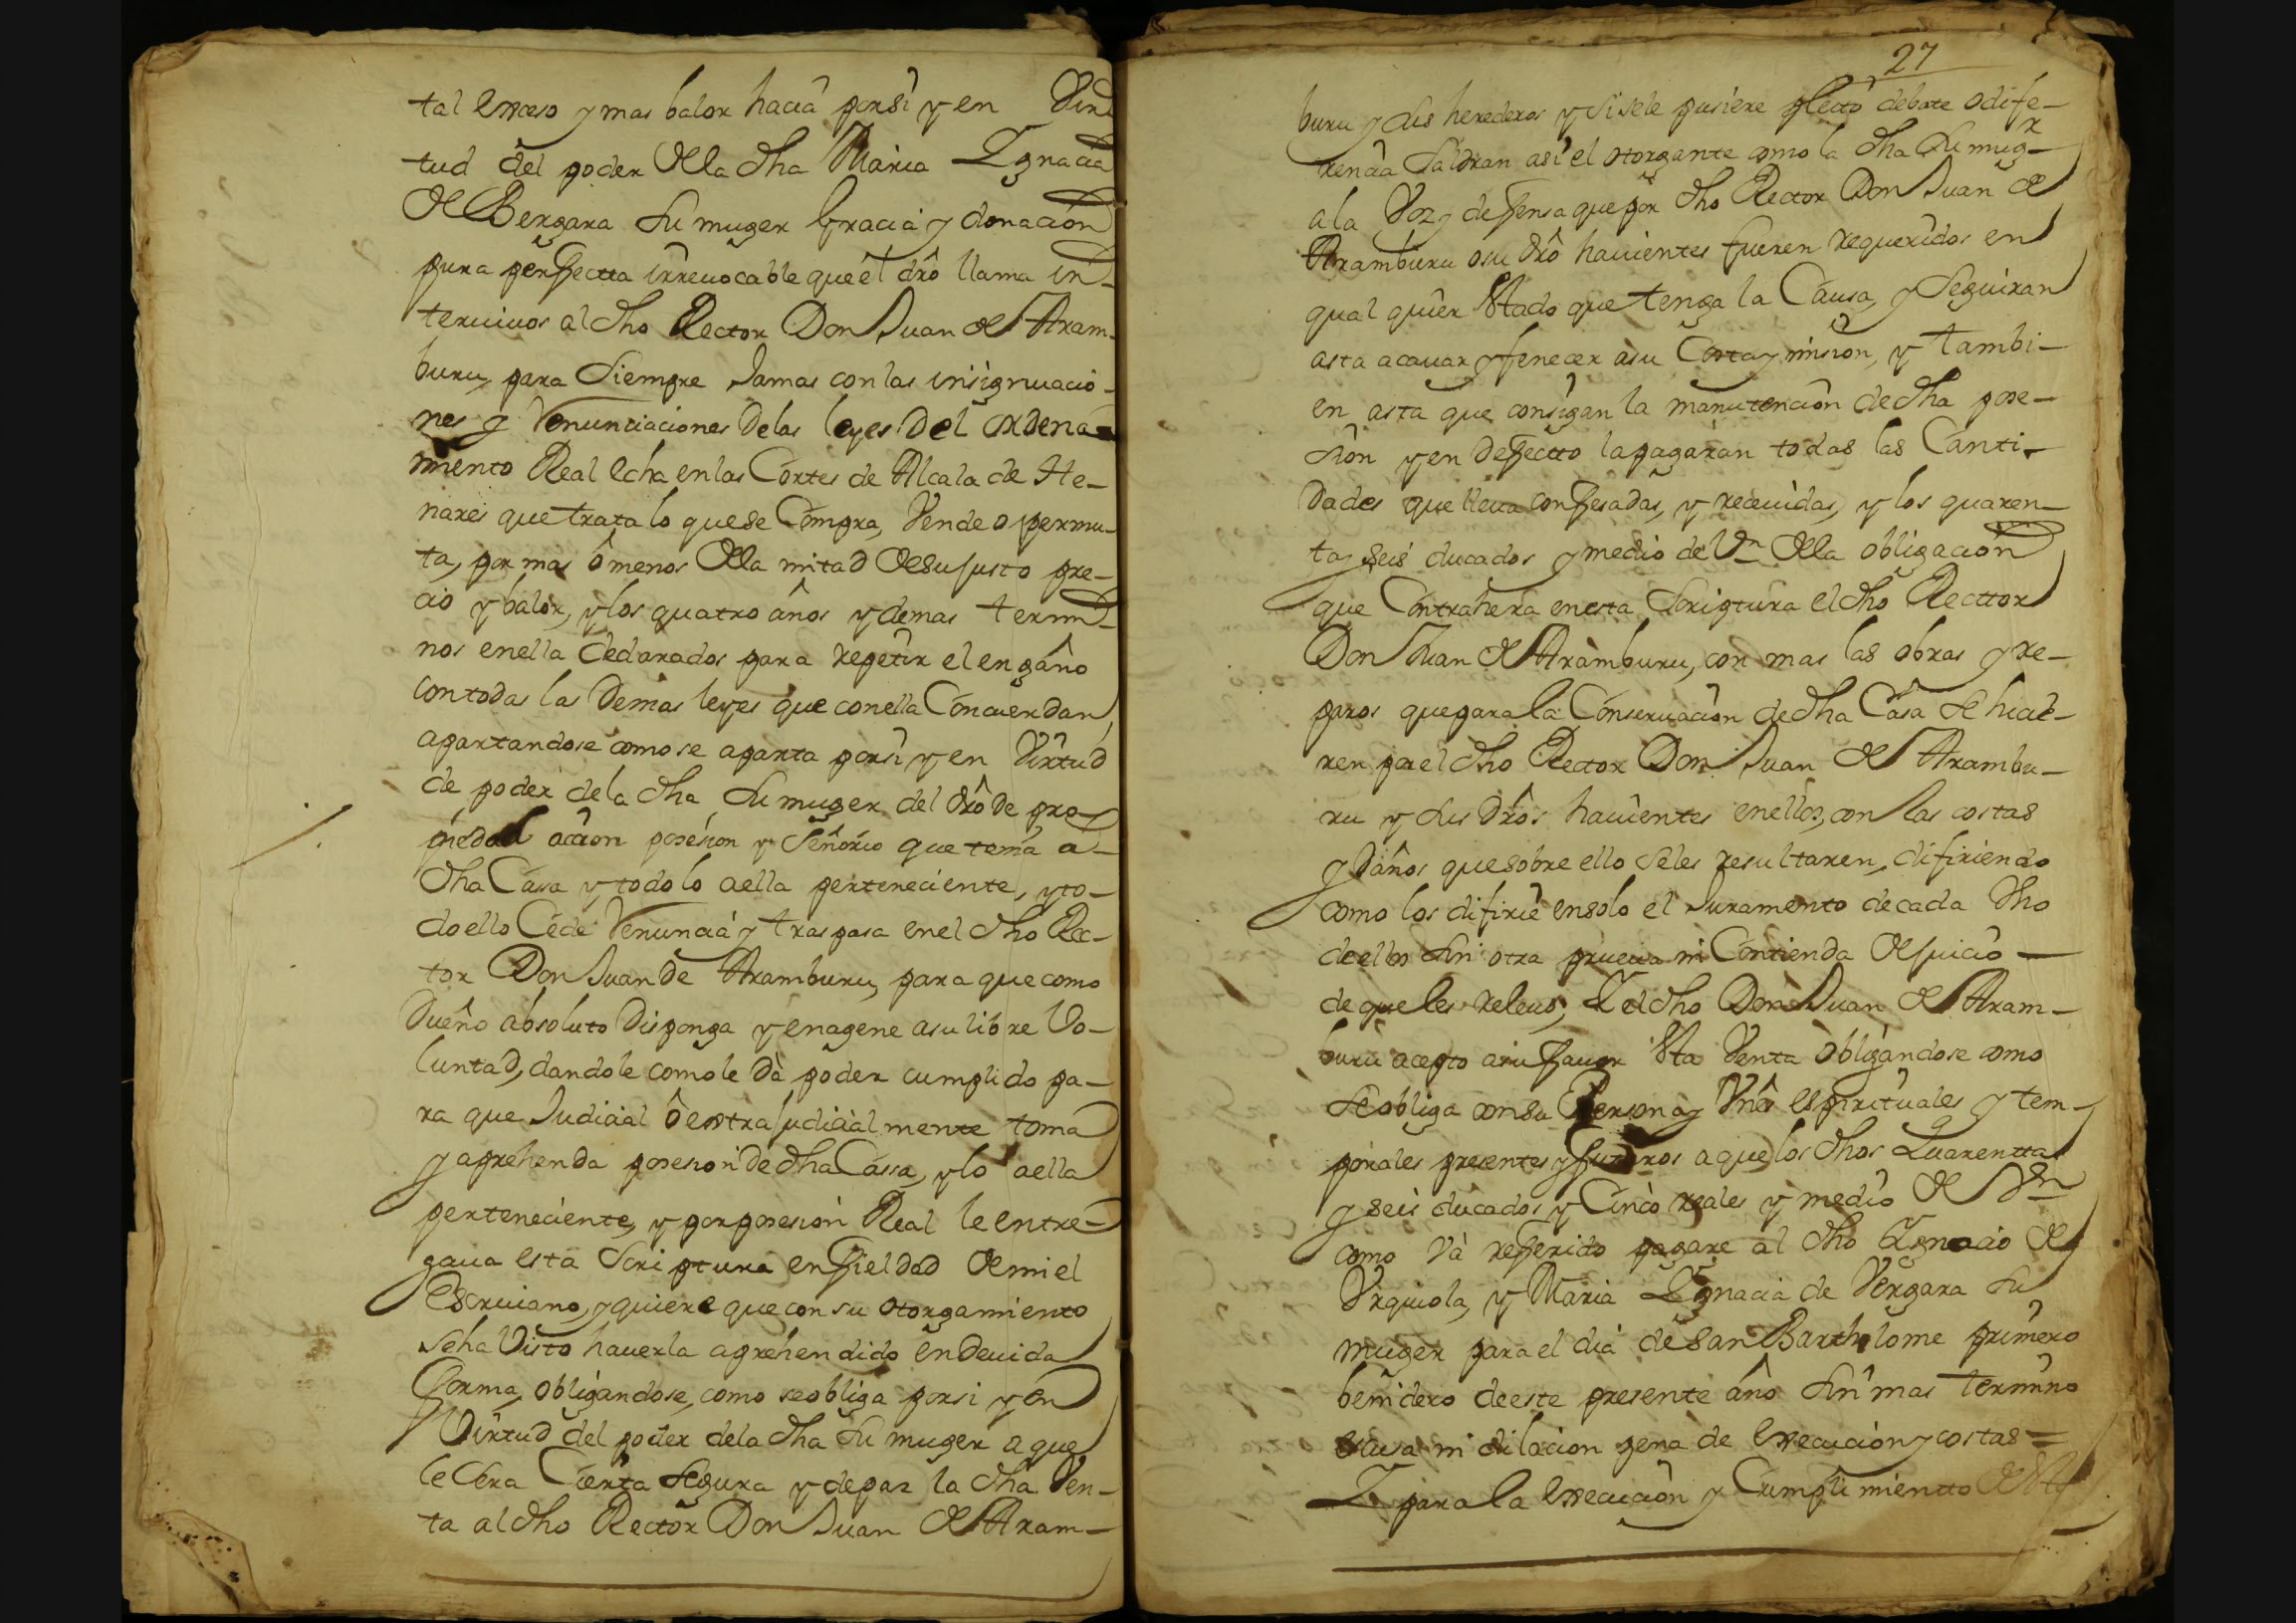 tal exceso y mas balor hacia por si y en Vir
tud del poder de la dha Maria Ygnacia
de Bergara su muger gracia y donacion
pura perfectta irrevocable que el dro llama in-
tervivos al dho Rector Don Juan de Aram-
buru, para siempre Jamas con las insignuacio-
nes y renunciaciones de las leyes del ordena-
miento Real echa en las Cortes de Alcala de He-
nares que trata lo que se Compra, Vende o permu-
ta, por mas ô menos de la mitad de su justo pre-
cio y balor, y los quatro años y demas termi-
nos en ella declarados para repetir el engaño
con todas las demas leyes que con ella Concuerdan
apartandose como se aparta por si y en Virtud
de poder de la dha su muger del dro de pro-
piedad accion posesion y señorio que tenia a
dha Casa y todo lo a ella perteneciente, y to-
do ello Cede renuncia y traspasa en el dho Rec-
tor Don Juan de Aramburu, para que como
Dueño absoluto disponga y enagene a su libre Vo-
luntad, dandole como le dà poder cumplido pa-
ra que Judicial ô extrajudicialmente toma
y aprehenda posesion de dha Cassa, y lo a ella
perteneciente, y por posesion Real le entre-
gaua esta Scriptura en fieldad de mi el
Escruiano, y quiere que con su otorgamiento
se ha Visto hauerla aprehendido en deuida
forma, obligandose, como se obliga por si y en
Virtud del poder de la dha su muger a que
le sera Cierta segura y de paz la dha Ven-
ta al dho Rector Don Juan de Aram-
27
buru y sus herederos y si se le pusiere plecto debate o dife-
rencia saldran asi el otorgante como la dha su mugr
a la Voz y defensa que por dho Rector Don Juan de
Aramburu o su dro hauientes fueren requeridos en
qual quier stado que tenga la Causa, y seguiran
asta acauar y fenecer a su Costa y mision, y tambi-
en asta que consigan la manutencion de dha pose-
sion y en defectto la pagaran todas las Canti-
dades que lleua confesadas, y receuidas, y los quaren-
ta y seis ducados y medio de Vn de la obligacion
que Contrahera en esta Scriptura el dho Recttor
Don Juan de Aramburu, con mas las obras y re-
paros que para la Conseruacion de dha Casa se hicie-
ren por el dho Rector Don Juan de Arambu-
ru y sus dros hauientes en ellos, con las costas
y daños que sobre ello se les resultaren, difiriendo
como los difirie en solo el Juramento de cada Vno
de ellos sin otra prueua ni Contienda de juicio
de que les releuo, Y el dho Don Juan de Aram-
buru acepto a su fauor sta Venta obligandose como
se obliga con su Persona y Vnes espirituales y tem-
porales presentes y futuros a que los dhos Quarentta
y seis ducados y Cinco reales y medio de Vn
como Và referido pagare al dho Ygnacio de
Vrquiola, y Maria Ygnacia de Vergara su
muger para el dia de San Bartholome primero
benidero de este presente año sin mas termino
escusa ni dilacion pena de execucion y costas =
Y para la execucion y Cumplimientto de sta